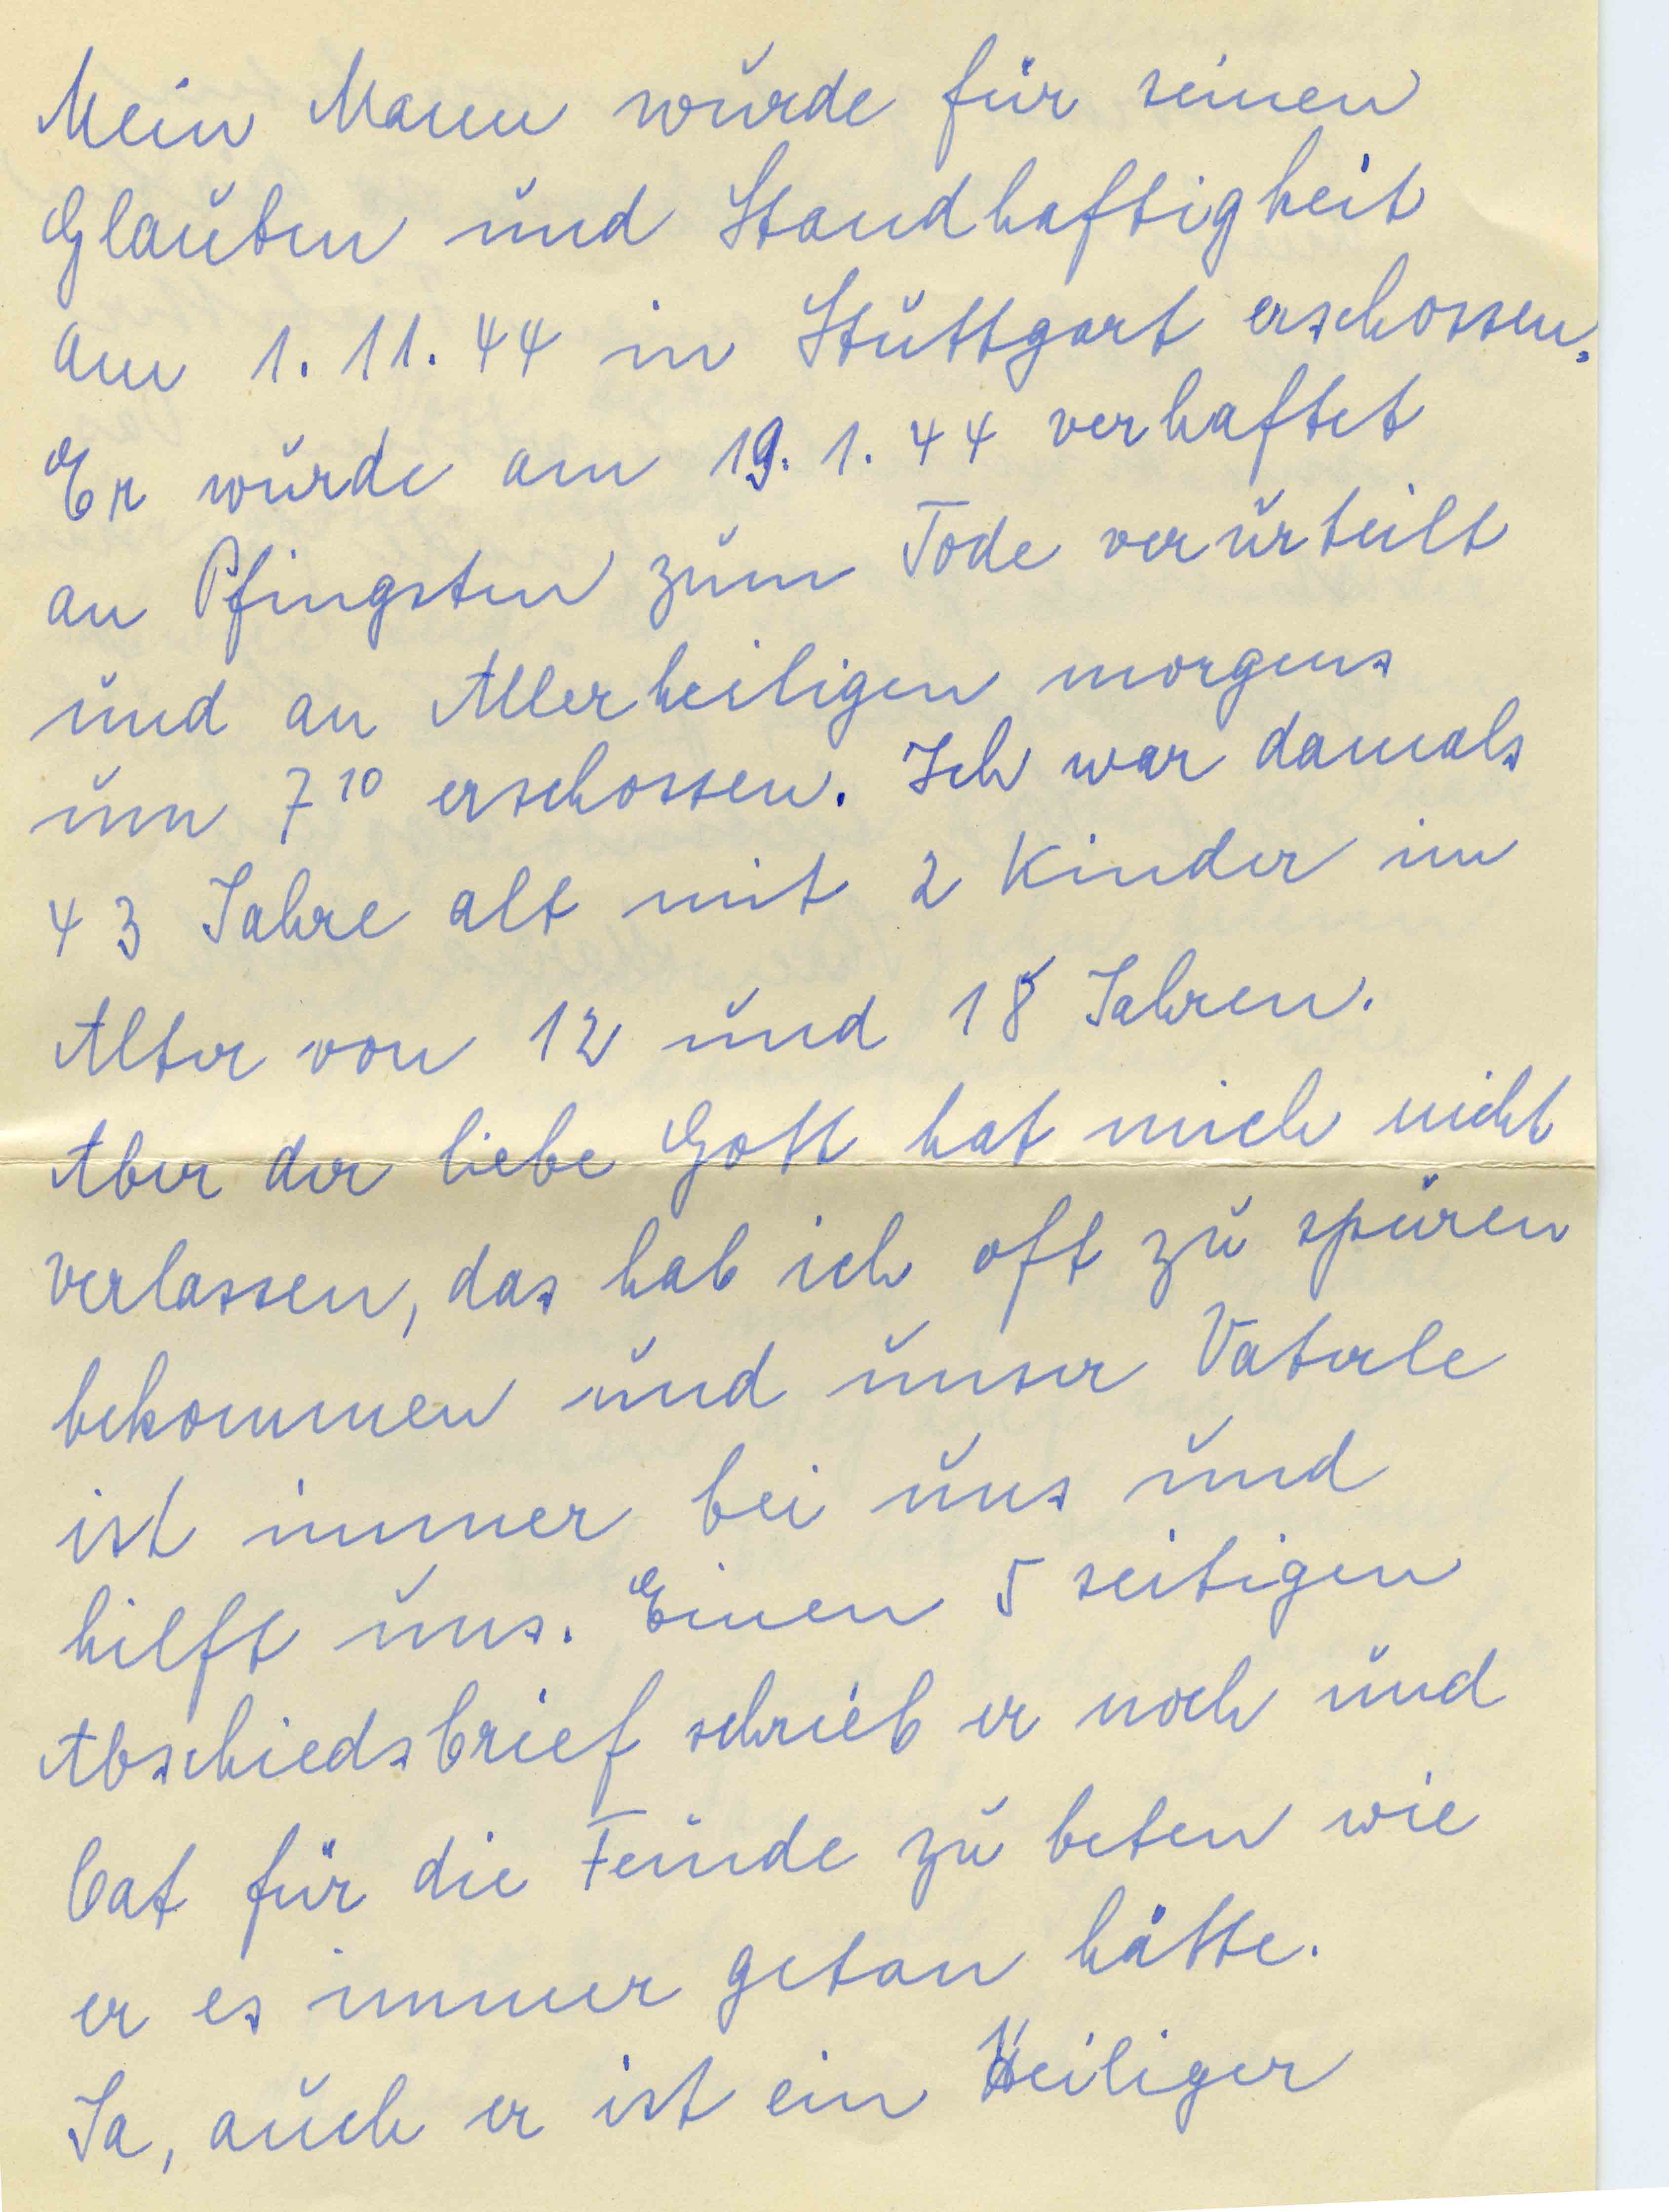 Mein Mann wurde für seinen
Glauben und Standhaftigkeit
am 1.11.44 in Stuttgart erschossen.
Er wurde am 19.1.44 verhaftet
an Pfingsten zum Tode verurteilt
und an Allerheiligen morgens
um 7 10 erschossen. Ich war damals
43 Jahre alt mit 2 Kinder im
Alter von 12 und 18 Jahren.
Aber der liebe Gott hat mich nicht
verlassen, das hab ich oft zu spüren
bekommen und unser Vaterle
ist immer bei uns und
hilft uns. Einen 5 seitigen
Abschiedsbrief schrieb er noch und
bat für die Feinde zu beten wie
er es immer getan hätte.
Ja, auch er ist ein Heiliger